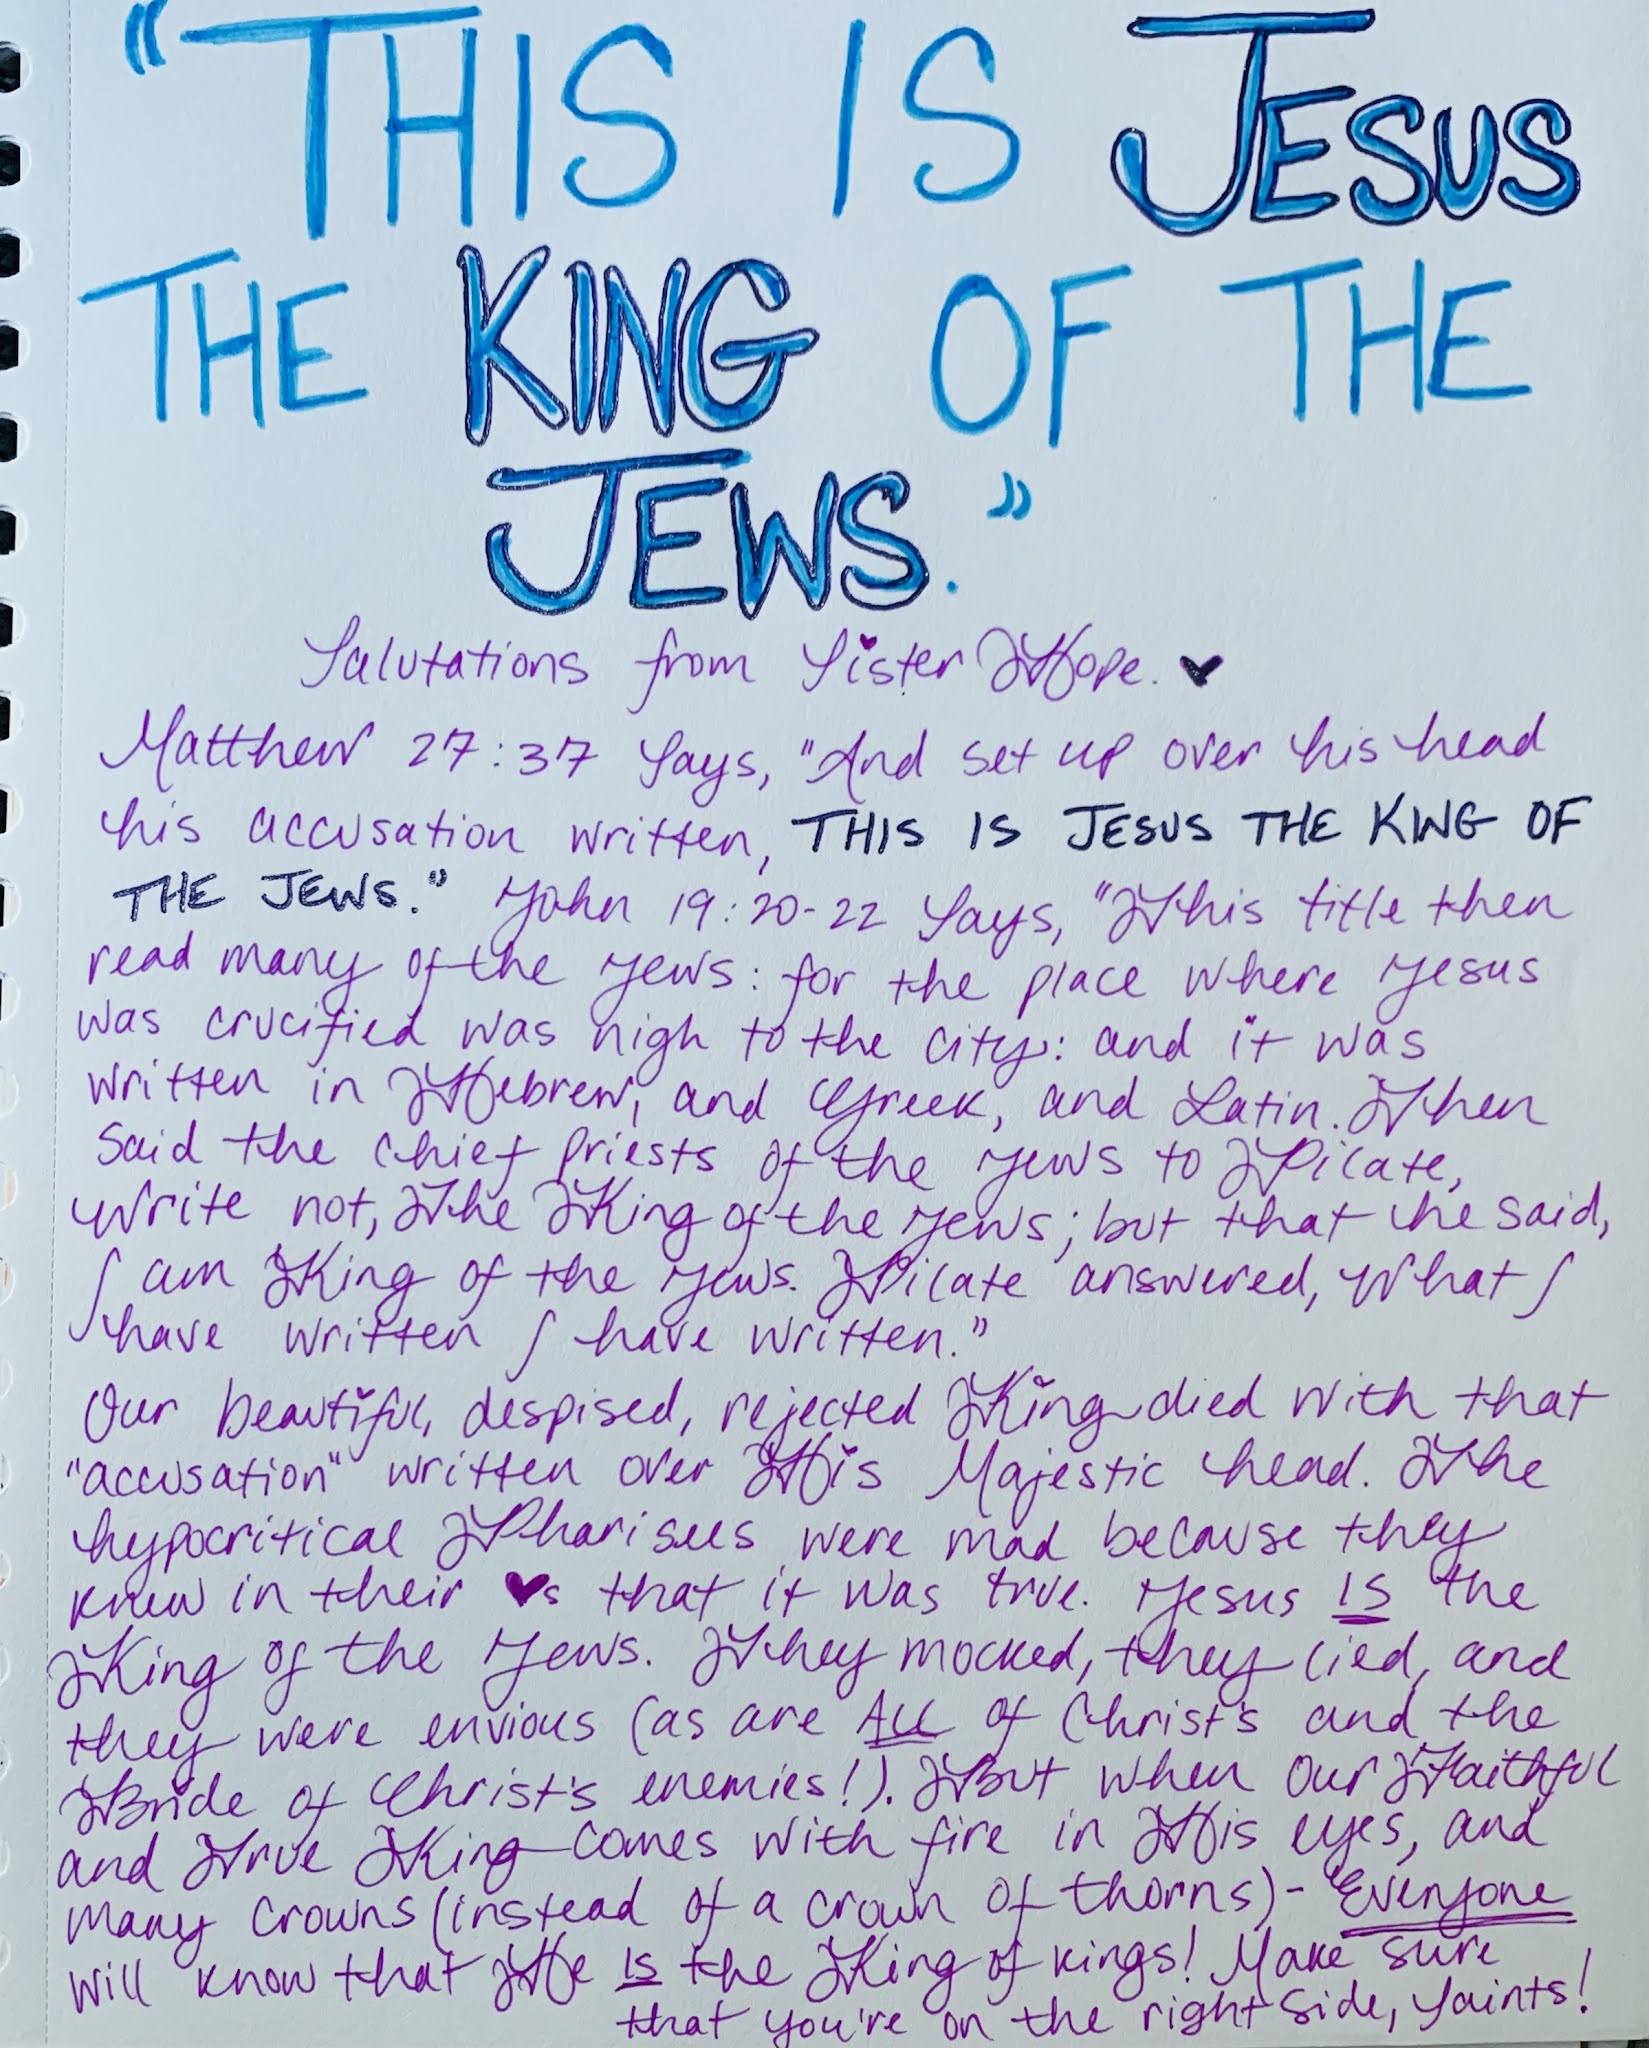 "THIS IS JESUS
THE KING OF THE
JEWS."
Salutations from Sister Hope. ♥
Matthew 27:37 Says, "And set up over his head
his accusation written, THIS IS JESUS THE KING OF
THE JEWS." John 19:20-22 Says, "This title then
read many of the Jews: for the place where Jesus
was crucified was nigh to the city: and it was
written in Hebrew, and Greek, and Latin. Then
Said the chief priests of the Jews to Pilate,
Write not, The King of the Jews; but that he said,
I am King of the Jews. Pilate answered, What I
have written I have written."
Our beautiful, despised, rejected King died with that
"accusation" written over His Majestic head. The
hypocritical Pharisees were mad because they
knew in their ♥s that it was true. Jesus IS the
King of the Jews. They mocked, they lied, and
they were envious (as are ALL of Christ's and the
Bride of Christ's enemies!). But when Our Faithful
and True King comes with fire in His eyes, and
many crowns (instead of a crown of thorns)- Everyone
will know that He IS the King of kings! Make sure
that you're on the right side, Saints!